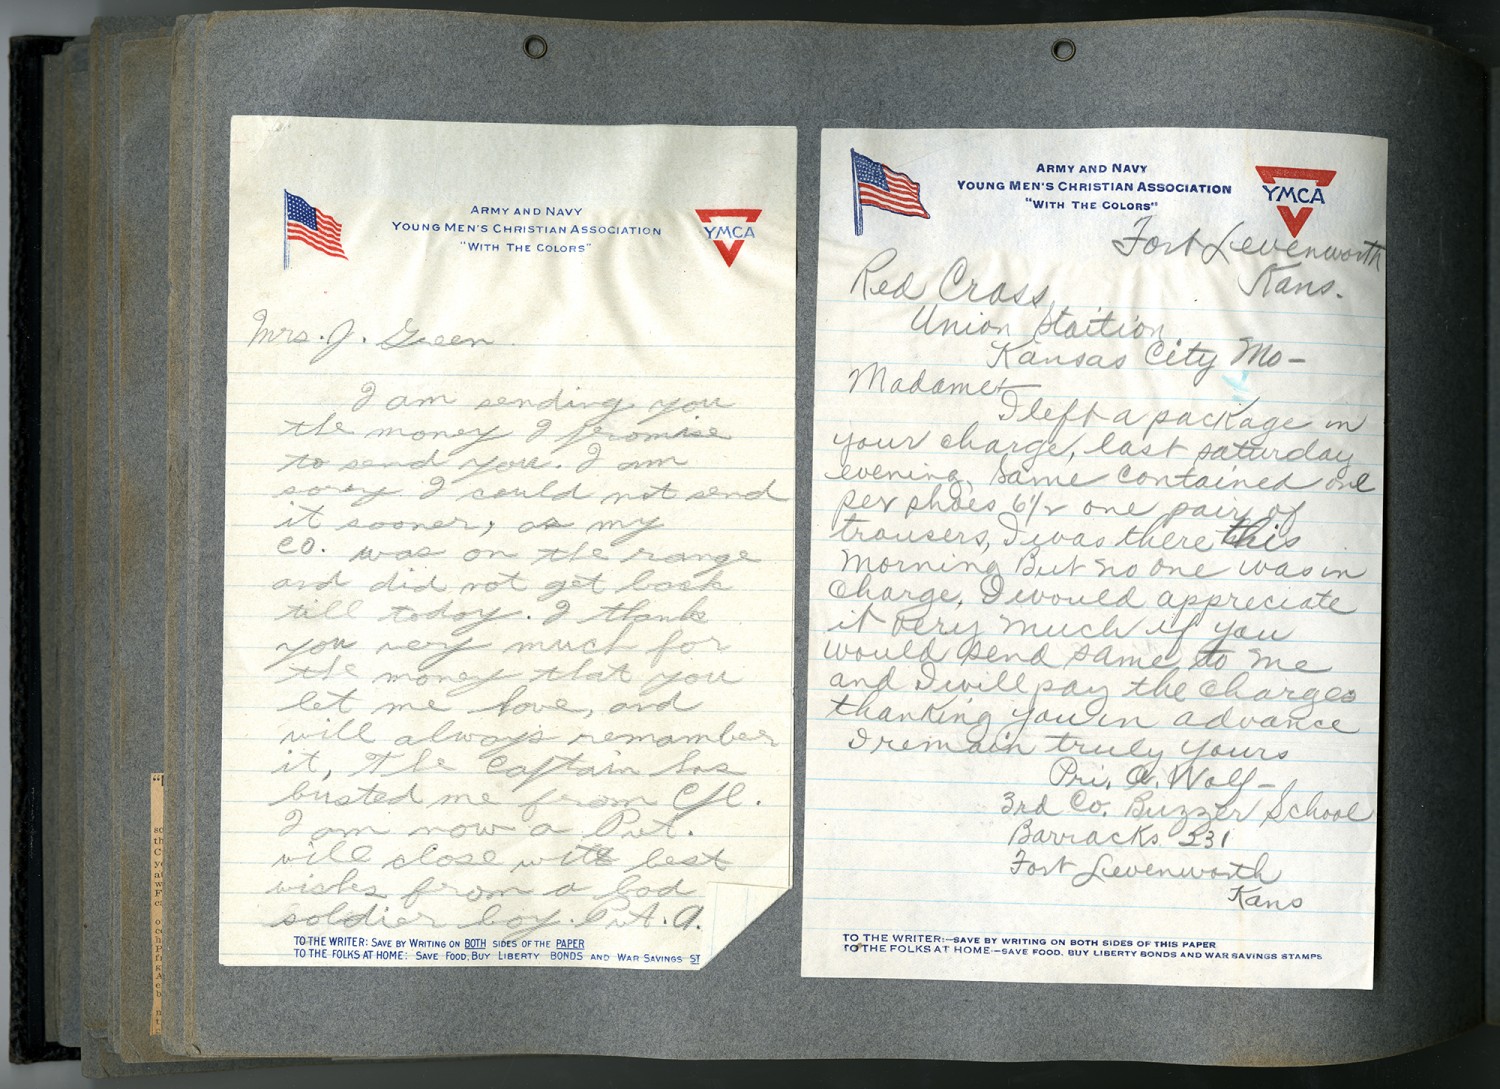 ARMY AND NAVY
YOUNG MEN'S CHRISTIAN ASSOCIATION
"WITH THE COLORS"
YMCA
Mrs. J. Green.
I am sending you
the money I promise
to send you. I am
sorry I could not send
it sooner, as my
CO. was on the range
and did not get back
till today. I thank
you very much for
the money that you
let me have, and
will always remamber
it, The Captain has
busted me from Cpl.
I am now a Pvt.
will close with best
wishes from a bad
soldier boy. Pvt. A.
TO THE WRITER: SAVE BY WRITING ON BOTH SIDES OF THE PAPER
TO THE FOLKS AT HOME: SAVE FOOD, BUY LIBERTY BONDS AND WAR SAVINGS ST
ARMY AND NAVY
YOUNG MEN'S CHRISTIAN ASSOCIATION
"WITH THE COLORS"
YMCA
Fort Levenworth
Kans.
Red Cross,
Union Staition,
Kansas City Mo-
Madame-
I left a package in
your charge, last saturday
evening, Same contained one
per shoes 6½ one pair of
trousers, I was there this
morning But no one was in
charge, I would appreciate
it very much if you
would send same, to me
and I will pay the charges
thanking you in advance
I remain truly yours
Pri. A. Wolf-
3rd Co. Buzzer School
Barracks 231
Fort Levenworth
Kans
TO THE WRITER:-SAVE BY WRITING ON BOTH SIDES OF THIS PAPER
TO THE FOLKS AT HOME-SAVE FOOD, BUY LIBERTY BONDS AND WAR SAVINGS STAMPS